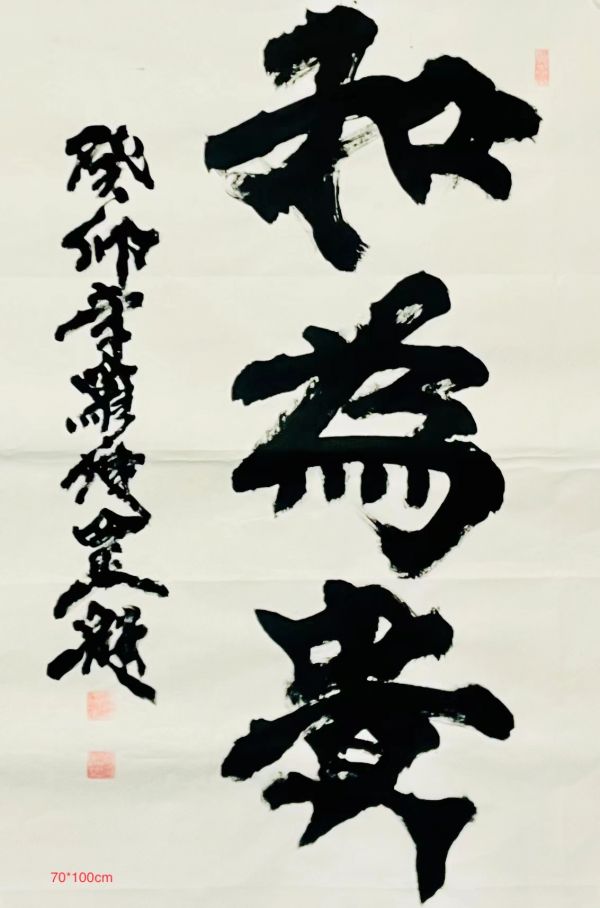 和為貴
癸卯年羅題
70*100cm